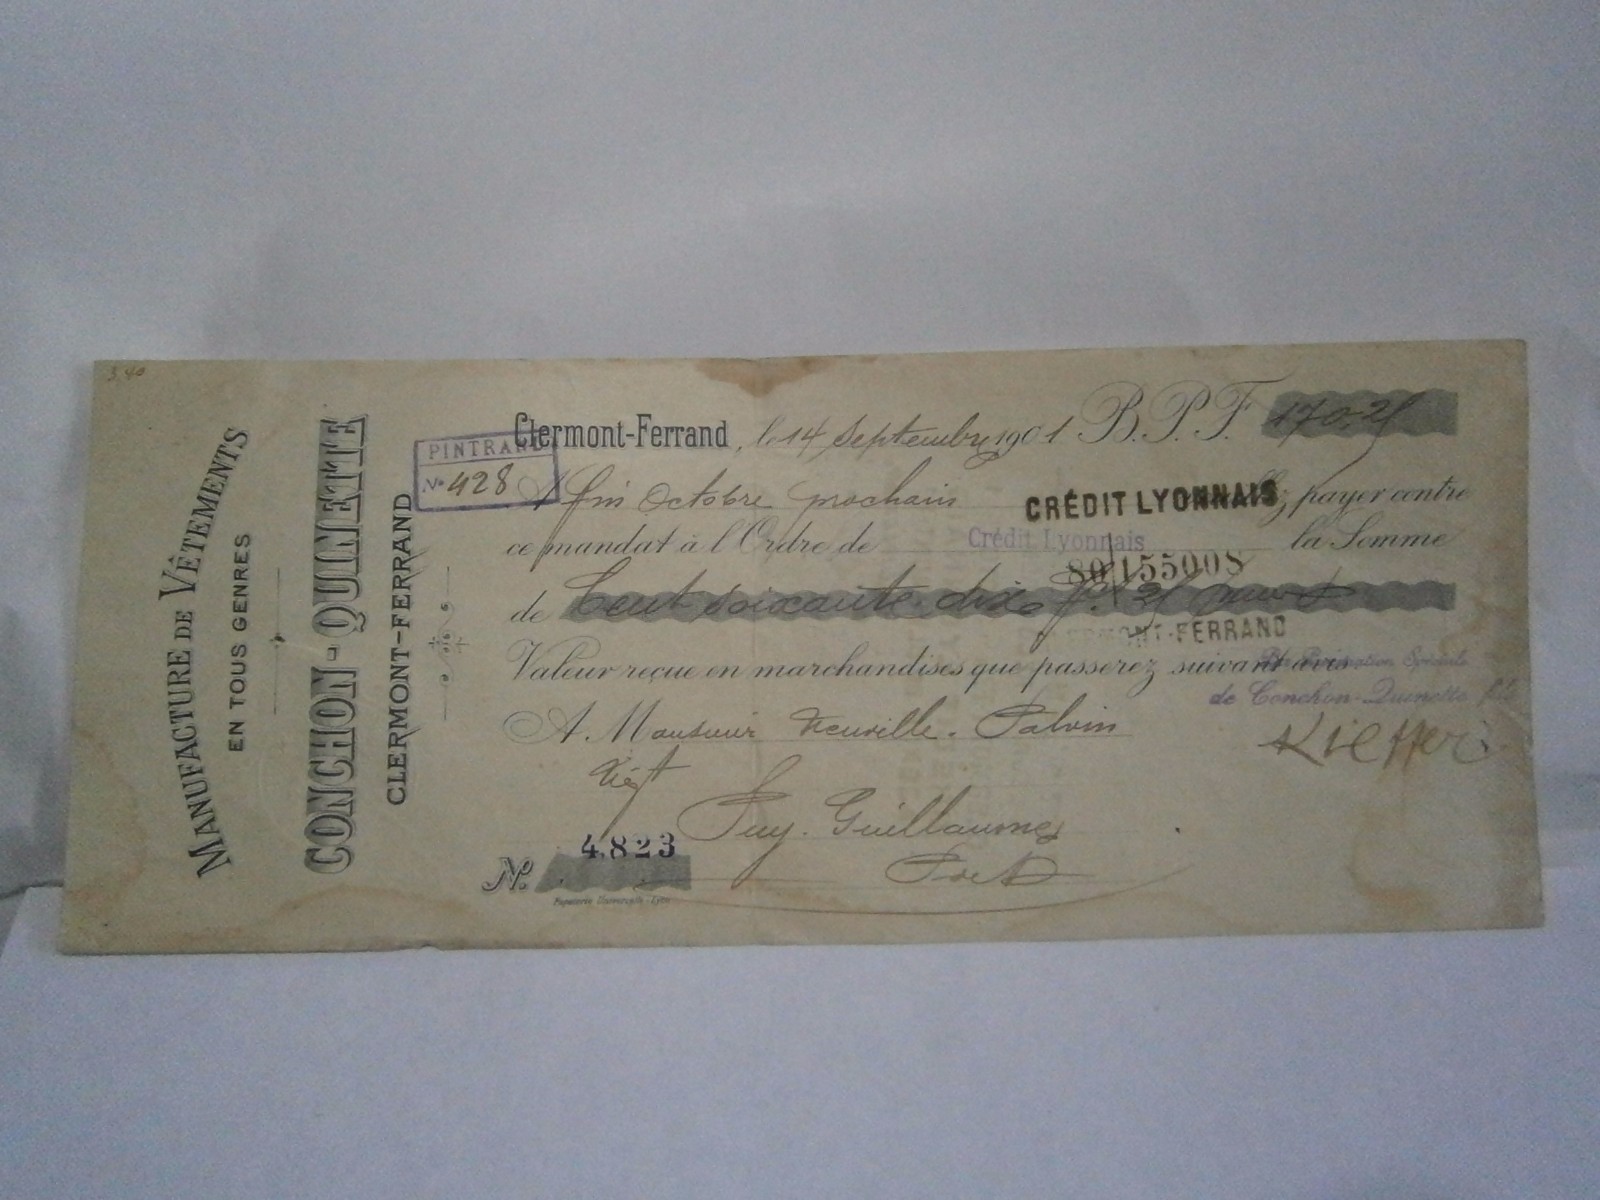 3.40
MANUFACTURE DE VÊTEMENTS
EN TOUS GENRES
CONCHON-QUINETTE
CLERMONT-FERRAND
PINTRAND
No 428
Clermont-Ferrand, le 14 Septembre 1901. B.P.F. 170.25
A fin Octobre prochain payer contre
CRÉDIT LYONNAIS
ce mandat à l'Ordre de Crédit Lyonnais la Somme
80155008
de Cent soixante dix f.
CLERMONT-FERRAND
Valeur reçue en marchandises que passerez suivant avis
Spéciale
de Conchon-Quinette fils
A. Monsieur Neuville-Palvin
Kieffer
Négt
Puy-Guillaume
N° 4,823
Papeterie Universelle-Lyon